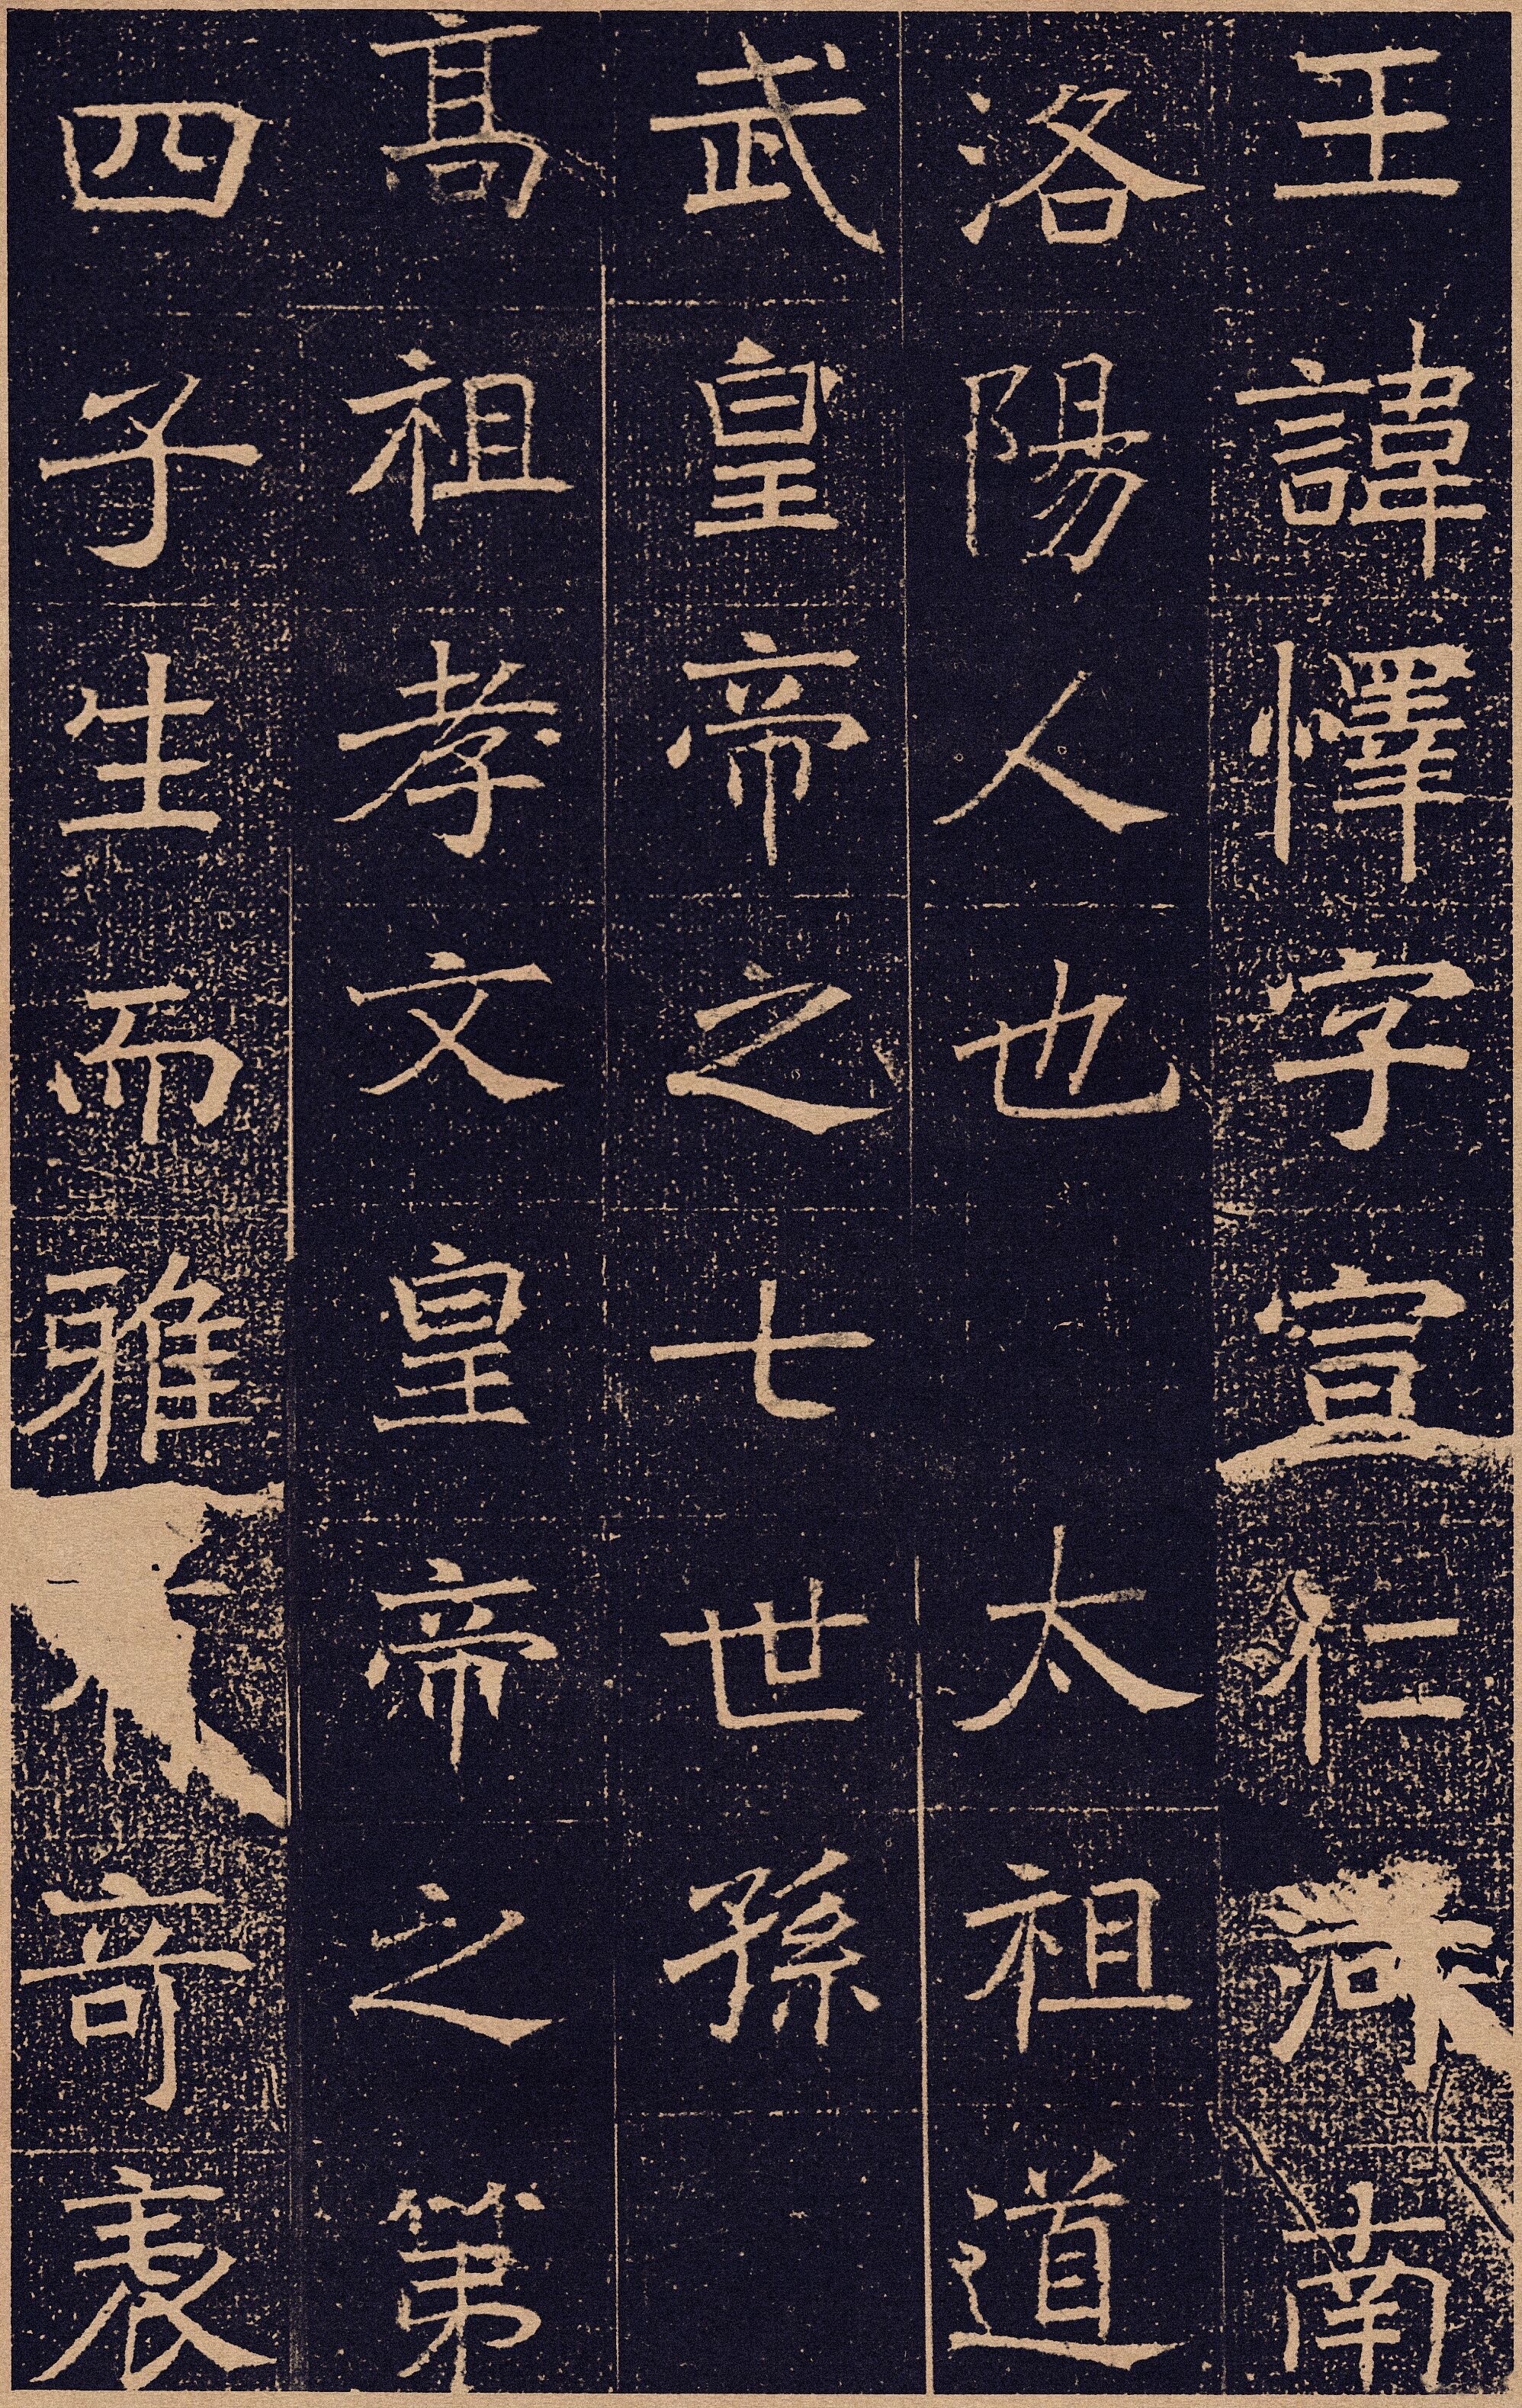 王諱懌字宣仁河南
洛陽人也太祖道
武皇帝之七世孫
高祖孝文皇帝之第
四子生而雅奇表